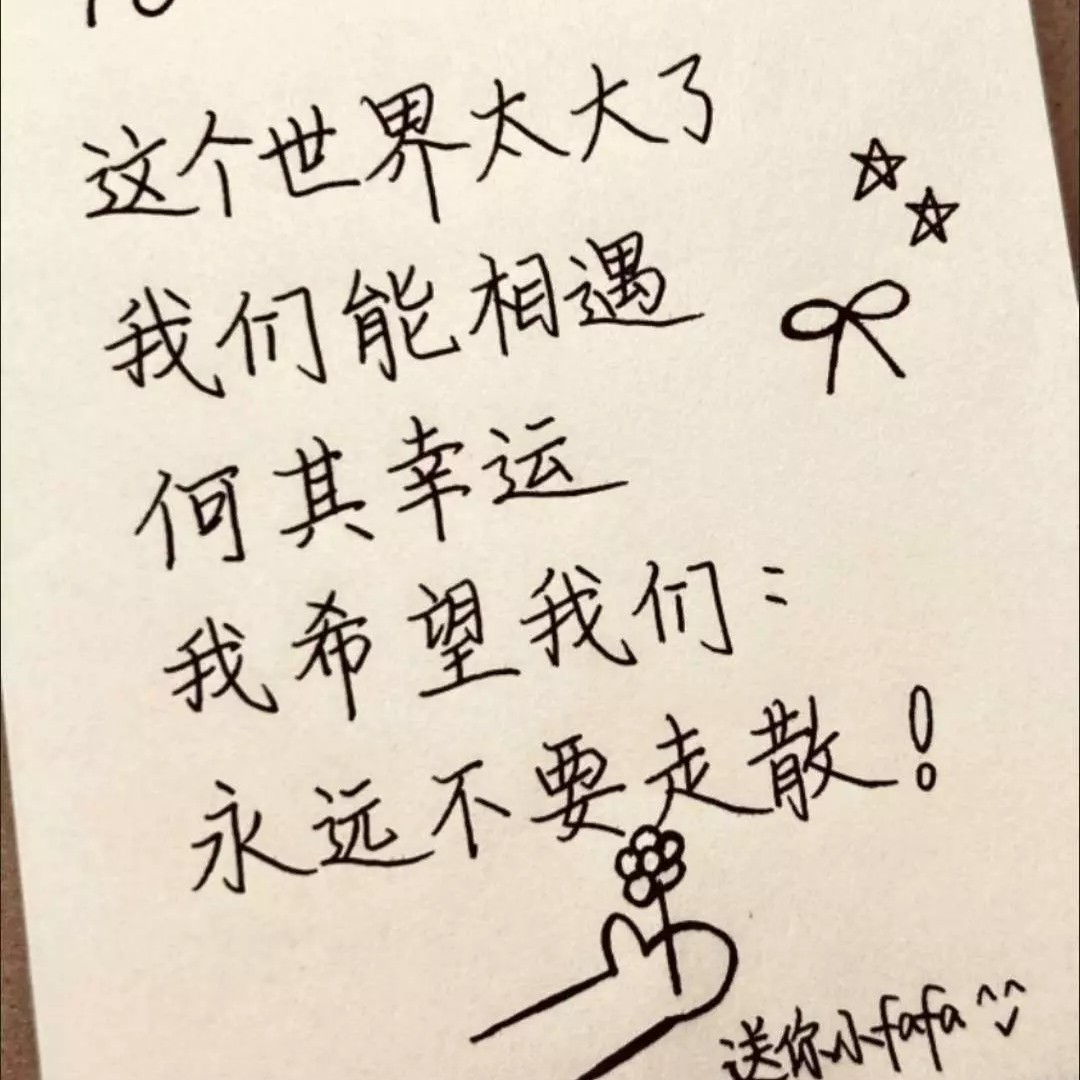 这个世界太大了
我们能相遇
何其幸运
我希望我们:
永远不要走散!
送你小fafa^^